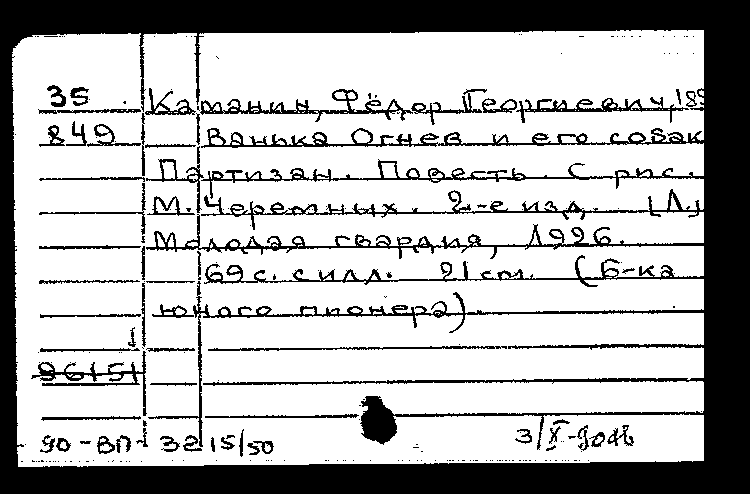 35 Каманин, Фёдор Георгиевич, 189
849 Ванька Огнев и его собак
Партизан. Повесть. С рис.
М. Черемных. 2-е изд. [Л.]
Молодая гвардия, 1926.
69 с. с илл. 21 cm. (Б-ка
юного пионера).
96151
90-ВП-3215/50 3/X-90